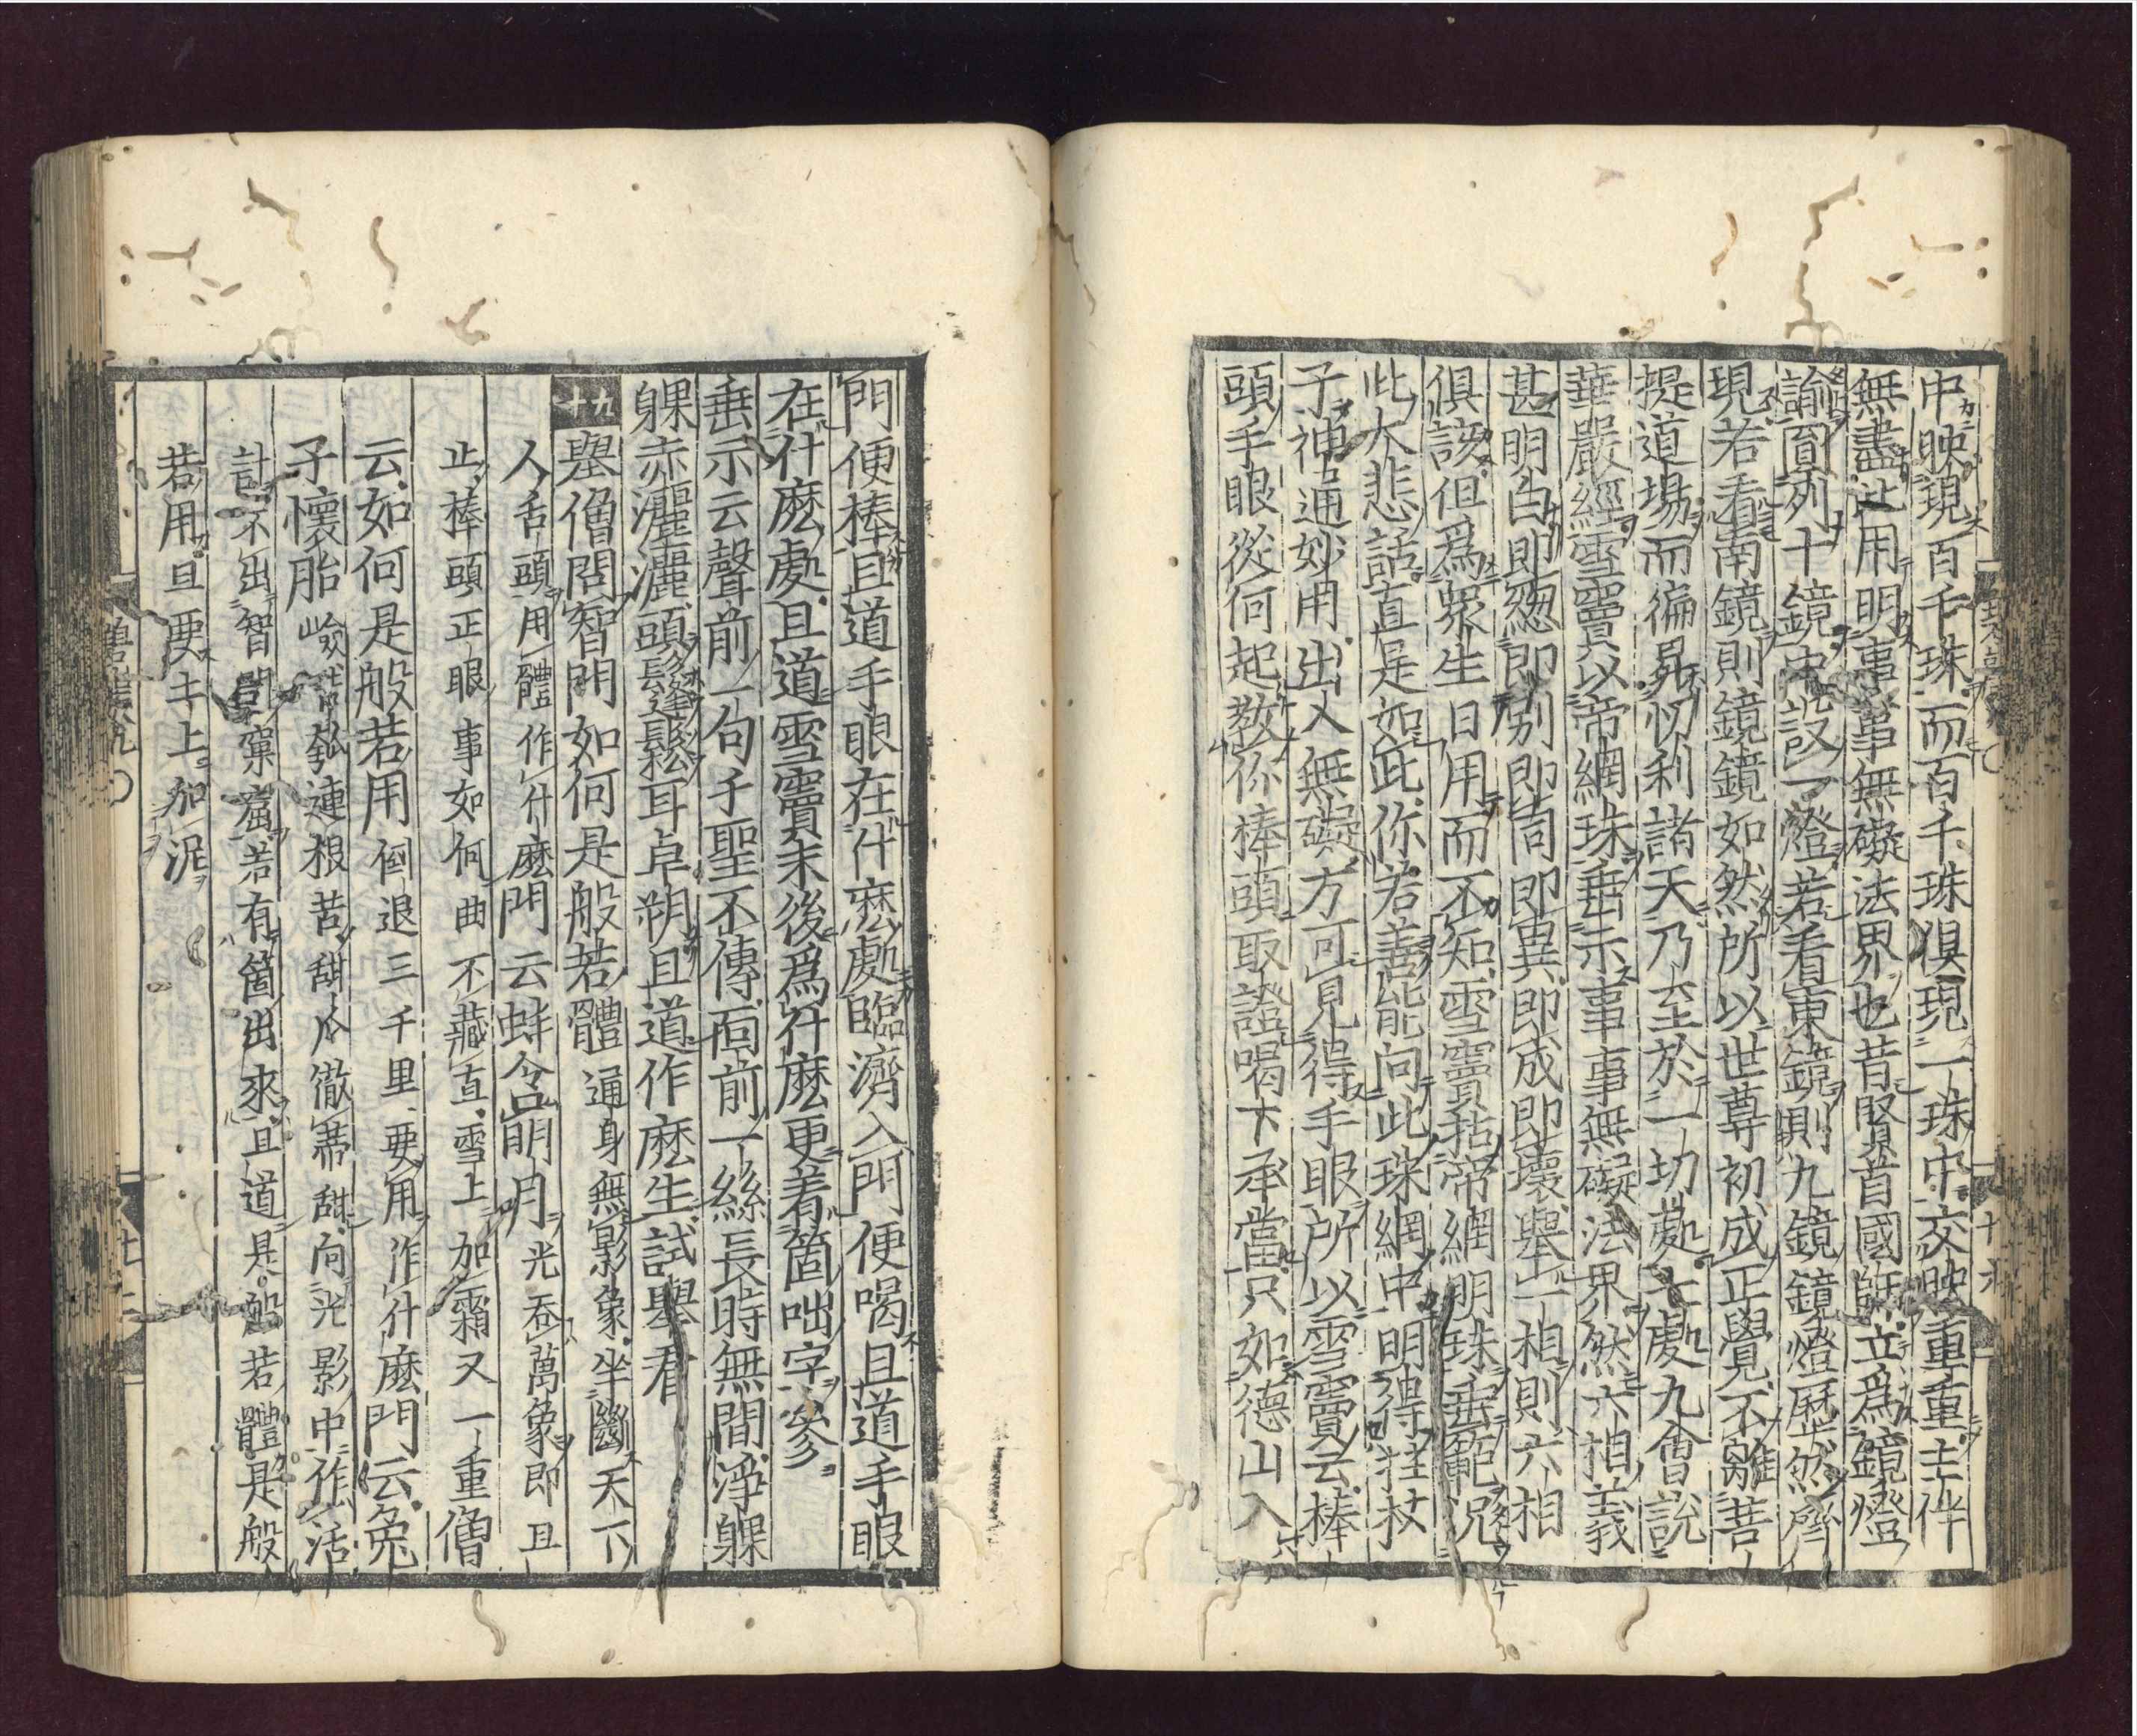 中映現百千珠而百千珠俱現一珠中交映重重主伴
無盡此用明事事無礙法界也昔賢首國師立爲鏡燈
諭圓列十鏡中設一燈若看東鏡則九鏡鏡燈歷然齊
現若看南鏡則鏡鏡如然所以世尊初成正覺不離菩
提道場而徧昇忉利諸天乃至於一切處七處九會說
華嚴經雪竇以帝網珠垂示事事無礙法界然六相義
甚明白即總即別即同即異即成即壞舉一相則六相
俱該但爲衆生日用而不知雪竇拈帝網明珠垂範況
此大悲話直是如此你若善能向此珠網中明得拄杖
子神通妙用出入無礙方可見得手眼所以雪竇云棒
頭手眼從何起教你棒頭取證喝下承當只如德山入
門便棒且道手眼在什麽處臨濟入門便喝且道手眼
在什麽處且道雪竇末後爲什麽更着箇咄字參
垂示云聲前一句千聖不傳面前一絲長時無間淨躶
躶赤灑灑頭鬔鬆耳卓朔且道作麽生試舉看
九十
舉僧問智門如何是般若體通身無影象坐斷天下
人舌頭用體作什麽門云蚌含明月光吞萬象即且
止棒頭正眼事如何曲不藏直雪上加霜又一重僧
云如何是般若用倒退三千里要用作什麽門云兔
子懷胎嶮苦瓠連根苦甜瓜徹蔕甜向光影中作活
計不出智門窠窟若有箇出來且道是般若體是般
若用且要土上加泥